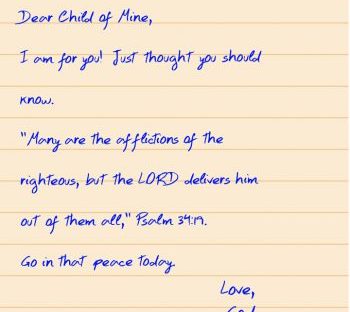 Dear Child of Mine,
I am for you! Just thought you should
know.
"Many are the afflictions of the
righteous, but the LORD delivers him
out of them all," Psalm 34:19.
Go in that peace today.
Love,